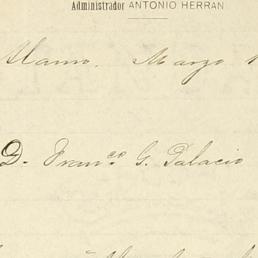 Administrador ANTONIO HERRAN
Llano, Marzo 1
D. Franco. G. Palacio